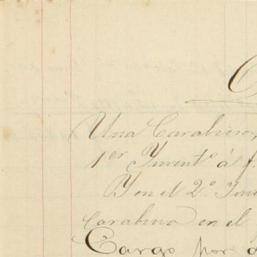 Una Carabina
1er Invent.o á f.
Y en el 2.o Inv
Carabina en el
Cargo por